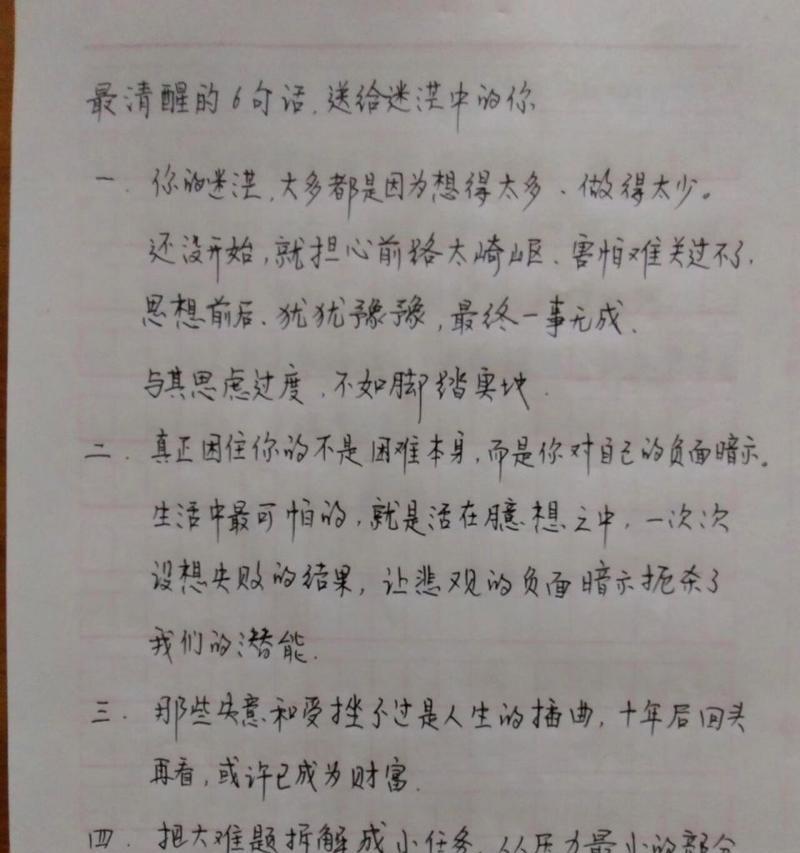 最清醒的6句话,送给迷茫中的你
一. 你的迷茫,太多都是因为想得太多、做得太少。
还没开始,就担心前路太崎岖、害怕难关过不了,
思想前后、犹犹豫豫,最终一事无成.
与其思虑过度,不如脚踏实地.
二. 真正困住你的不是困难本身,而是你对自己的负面暗示。
生活中最可怕的,就是活在臆想之中,一次次
设想失败的结果,让悲观的负面暗示扼杀了
我们的潜能.
三. 那些失意和受挫不过是人生的插曲,十年后回头
再看,或许已成为财富.
四. 把大难题拆解成小任务,从压力最小的部分